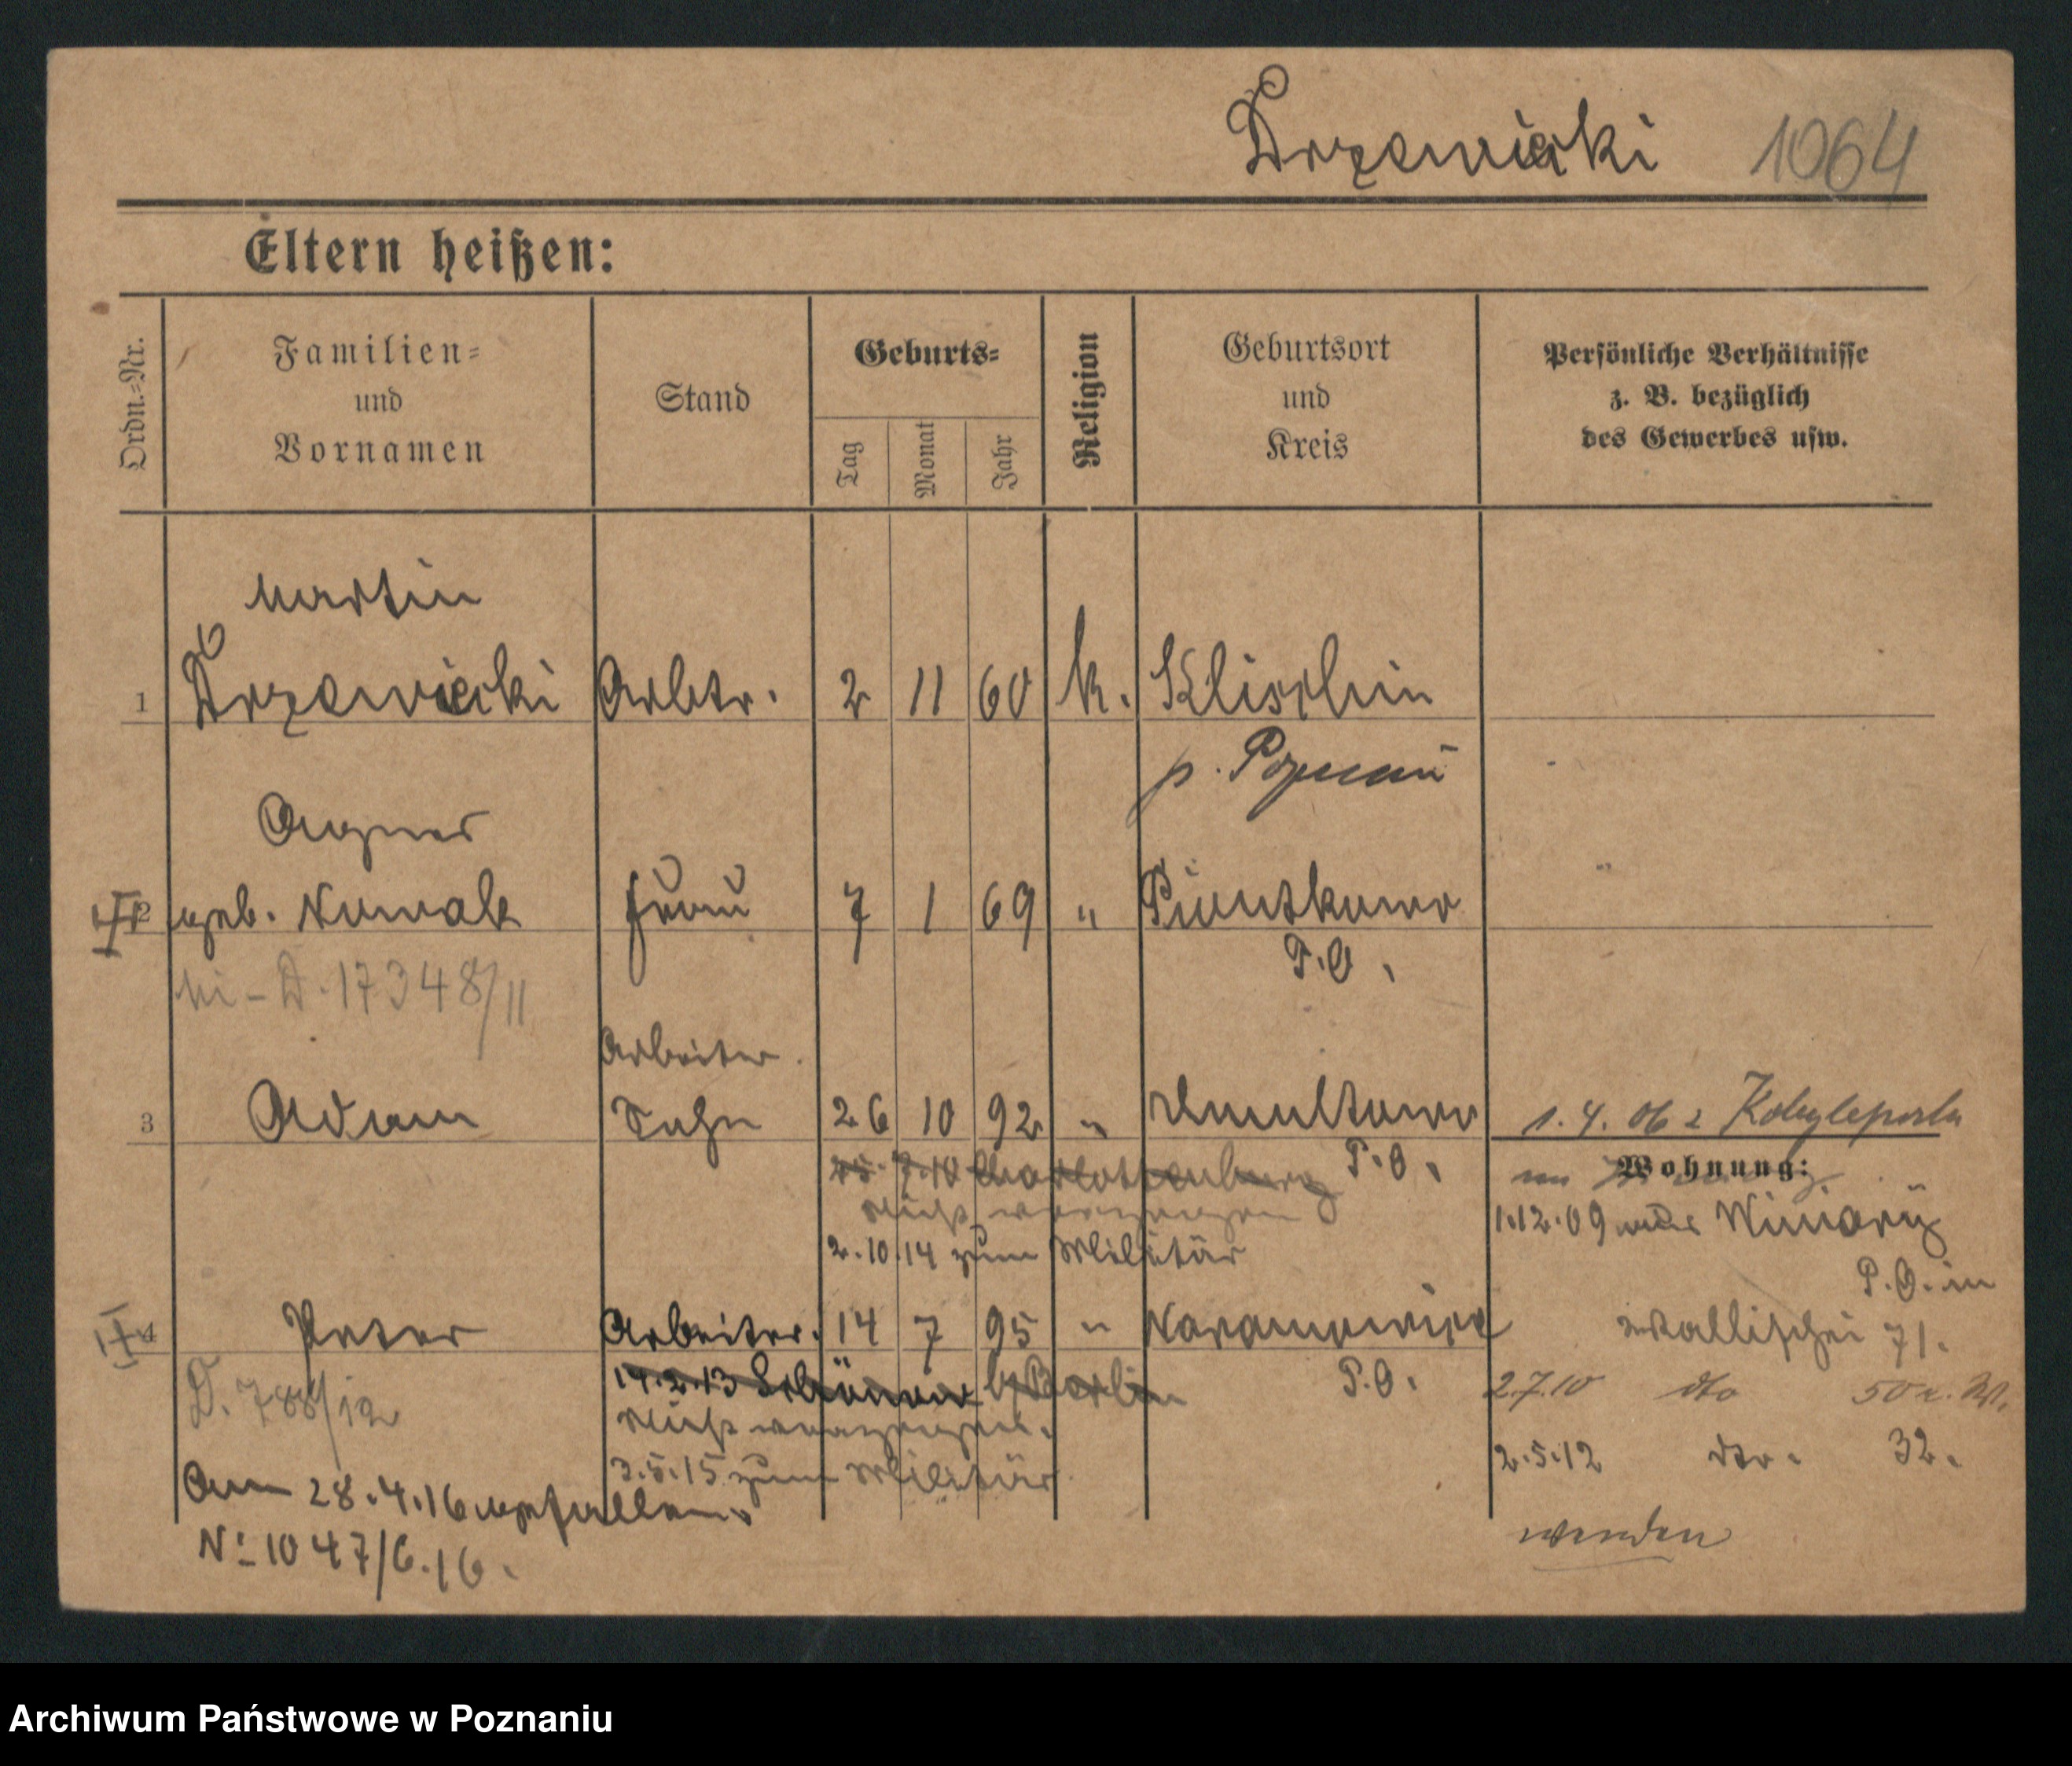 Drzewiecki 1064
Eltern heißen:
Ordn.-Nr.
Familien-
und
Vornamen
Stand
Geburts-
Tag
Monat
Jahr
Religion
Geburtsort
und
Kreis
Persönliche Verhältnisse
z. B. bezüglich
des Gewerbes usw.
Martin
1 Drzewiecki Arbtr. 2 11 60 k. Klischin
p. Poznań
Agnes
2 geb. Nowak Frau 7 1 69 " Piontkowo
P.O.
D. 17348/11
Arbeiter
3 Adam Sohn 26 10 92 " Umultowo 1.4.06 Kobylepole
P.O.
Wohnung:
25. 7.10 Charlottenburg
Nicht verzogen
1.12.09 Winiary
2.10.14 zum Militär
P.O. in
4 Peter Arbeiter. 14 7 95 " Naramowice Wallischei 71.
P.O.
14.2.13 b/Berlin
D. 788/12
Nicht verzogen.
2.7.10 dto 50
3.5.15 zum Militär
2.5.12 dto. 32.
Am 28.4.16 gefallen.
No 1047/6.16.
wenden
Archiwum Państwowe w Poznaniu